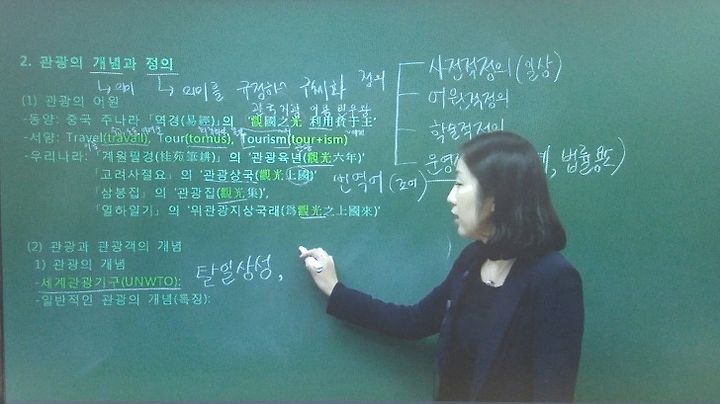 2. 관광의 개념과 정의
↳ 의미 ↳ 의미를 규정하 구체화
(1) 관광의 어원
-동양: 중국 주나라 「역경(易經)」의 '觀國之光 利用賓于王'
-서양: Travel(travail), Tour(tornus), Tourism(tour+ism)
-우리나라: 「계원필경(桂苑筆耕)」의 '관광육년(觀光六年)'
「고려사절요」의 '관광상국(觀光上國)'
「삼봉집」의 '관광집(觀光集)',
「열하일기」의 '위관광지상국래(爲觀光之上國來)'
(2) 관광과 관광객의 개념
1) 관광의 개념
-세계관광기구(UNWTO):
-일반적인 관광의 개념(특징):
탈일상성,
정의
사전적정의(일상)
어원적정의
학술적정의
운영
법률용
번역어